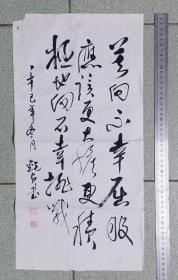 若向不幸屈服
应该更大胆更积
极地向不幸挑战
辛巳年冬月